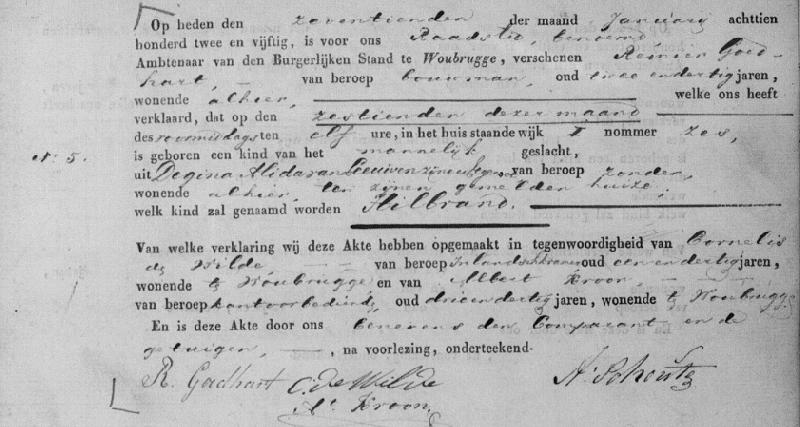 Op heden den zeventienden der maand Januarij achttien
honderd twee en vijftig, is voor ons Raadslid, benoemd
Ambtenaar van den Burgerlijken Stand te Woubrugge, verschenen Reinier Goed-
hart, — van beroep bouwman, oud twee endertig jaren,
wonende alhier, welke ons heeft
verklaard, dat op den zestienden dezer maand
des voormiddags ten elf ure, in het huis staande wijk I nommer zes,
No. 5. is geboren een kind van het mannelijk geslacht,
uit Degina Alida van Leeuwen zijne van beroep zonder,
wonende alhier, ten zijnen gemelden huize.
welk kind zal genaamd worden Hilbrand.
Van welke verklaring wij deze Akte hebben opgemaakt in tegenwoordigheid van Cornelis
de Wilde van beroep Inlandschkramer oud een endertig jaren,
wonende te Woubrugge en van Albert Kroon, —
van beroep kantoorbediende, oud drieendertig jaren, wonende te Woubrugge.
En is deze Akte door ons benevens den Comparant en de
getuigen, —, na voorlezing, onderteekend.
R. Goedhart C: de Wilde
At Kroon